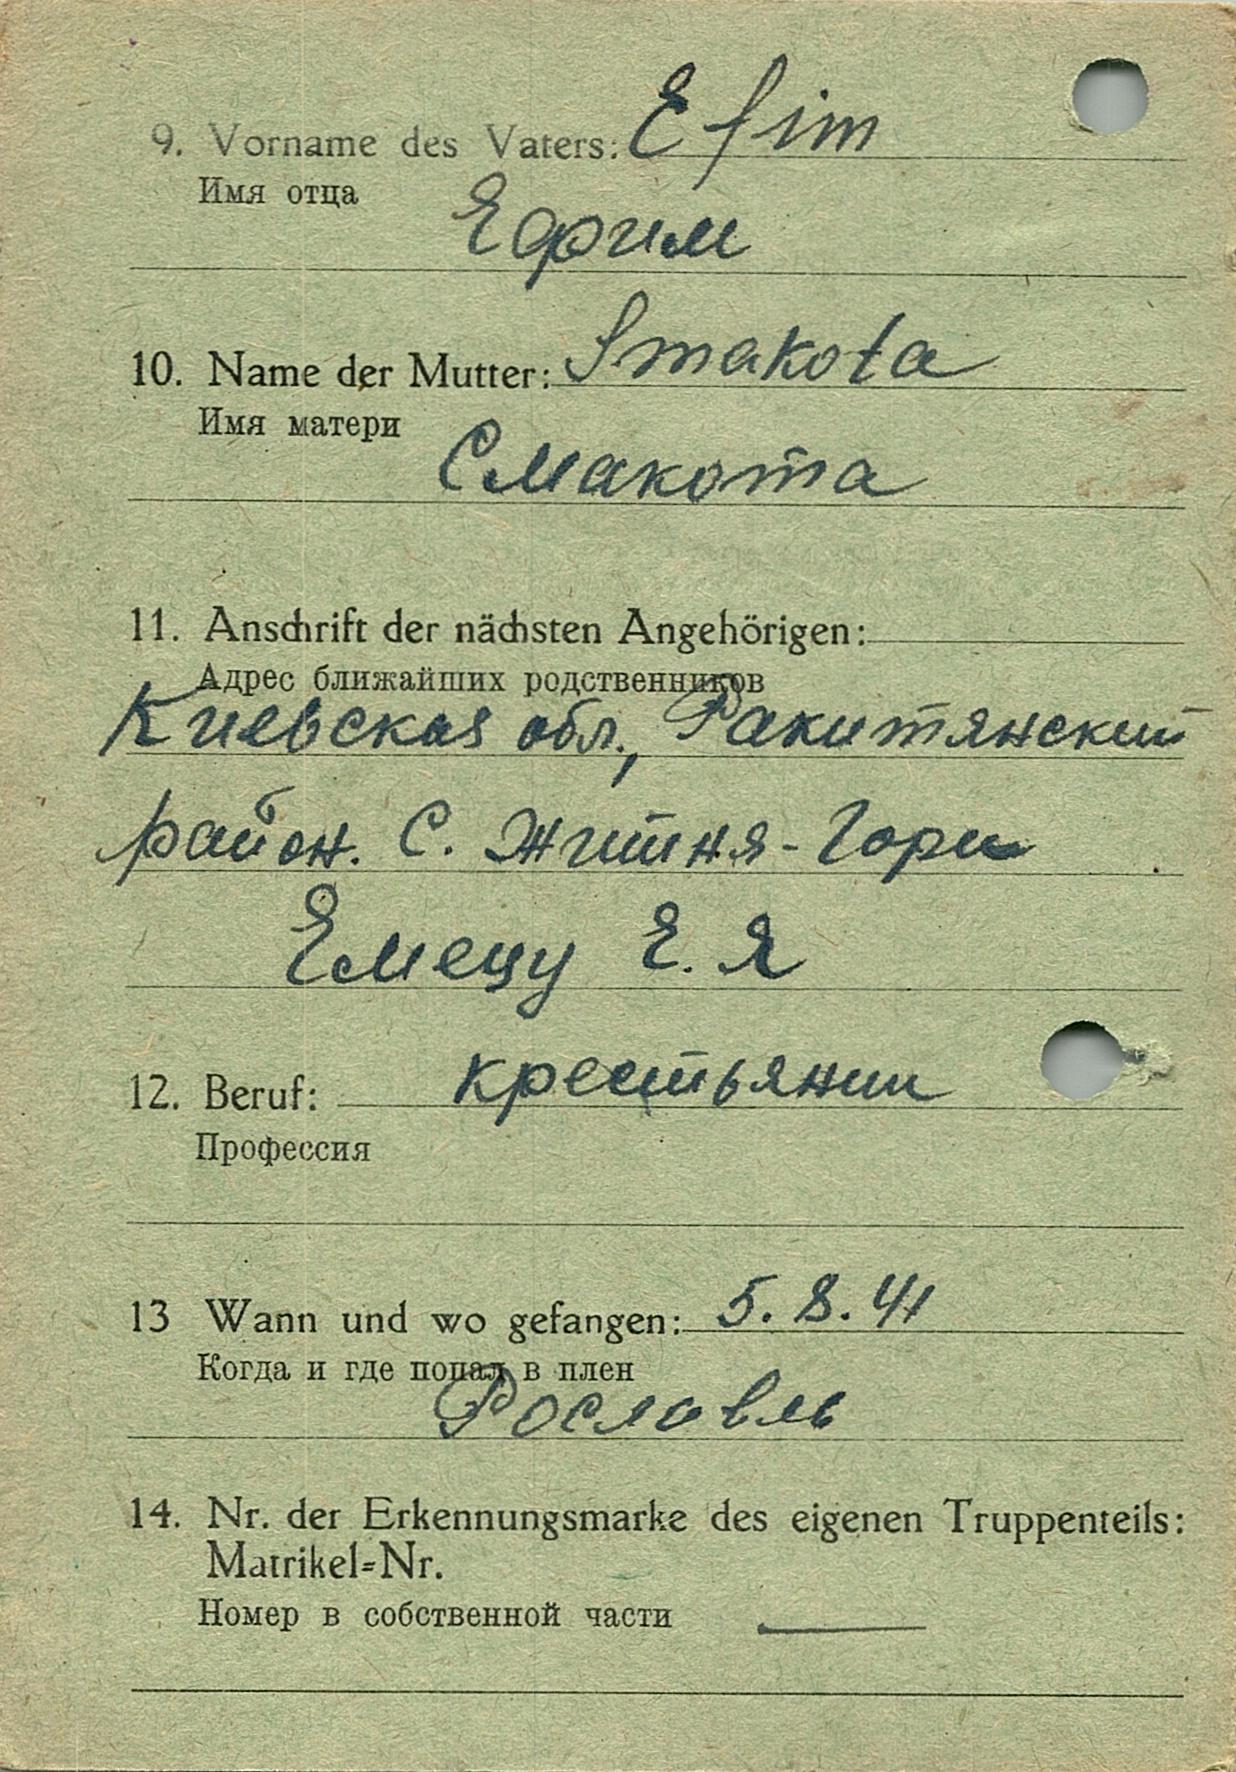 9. Vorname des Vaters: Efim
Имя отца
Ефим
10. Name der Mutter: Smakota
Имя матери
Смакота
11. Anschrift der nächsten Angehörigen:
Адрес ближайших родственников
Киевская обл., Ракитянский
район. С. Житня-Гори
Емецу Е. Я
12. Beruf: крестьянин
Профессия
13 Wann und wo gefangen: 5. 8. 41
Когда и где попал в плен
Рославль
14. Nr. der Erkennungsmarke des eigenen Truppenteils:
Matrikel=Nr.
Номер в собственной части —